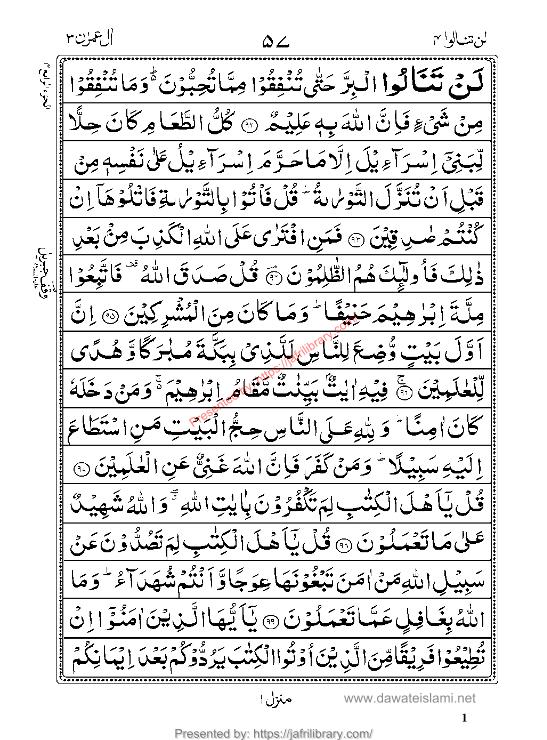 لن تنالوا ۴
۵۷
اٰل عمرٰن ۳
لَنْ تَنَالُوا الْبِرَّ حَتّٰى تُنْفِقُوْا مِمَّا تُحِبُّوْنَ ؕ۬ وَمَا تُنْفِقُوْا
مِنْ شَیْءٍ فَاِنَّ اللّٰهَ بِهٖ عَلِیْمٌ ﴿۹۲﴾ كُلُّ الطَّعَامِ كَانَ حِلًّا
لِّبَنِیْۤ اِسْرَآءِیْلَ اِلَّا مَا حَرَّمَ اِسْرَآءِیْلُ عَلٰى نَفْسِهٖ مِنْ
قَبْلِ اَنْ تُنَزَّلَ التَّوْرٰىةُ ؕ قُلْ فَاْتُوْا بِالتَّوْرٰىةِ فَاتْلُوْهَاۤ اِنْ
كُنْتُمْ صٰدِقِیْنَ ﴿۹۳﴾ فَمَنِ افْتَرٰى عَلَى اللّٰهِ الْكَذِبَ مِنْۢ بَعْدِ
ذٰلِكَ فَاُولٰٓىِٕكَ هُمُ الظّٰلِمُوْنَ ﴿۹۴﴾ قُلْ صَدَقَ اللّٰهُ ۫ فَاتَّبِعُوْا
مِلَّةَ اِبْرٰهِیْمَ حَنِیْفًا ؕ وَمَا كَانَ مِنَ الْمُشْرِكِیْنَ ﴿۹۵﴾ اِنَّ
اَوَّلَ بَیْتٍ وُّضِعَ لِلنَّاسِ لَلَّذِیْ بِبَكَّةَ مُبٰرَكًا وَّهُدًى
لِّلْعٰلَمِیْنَ ﴿۹۶﴾ فِیْهِ اٰیٰتٌۢ بَیِّنٰتٌ مَّقَامُ اِبْرٰهِیْمَ ۚ۬ وَمَنْ دَخَلَهٗ
كَانَ اٰمِنًا ؕ وَلِلّٰهِ عَلَى النَّاسِ حِجُّ الْبَیْتِ مَنِ اسْتَطَاعَ
اِلَیْهِ سَبِیْلًا ؕ وَمَنْ كَفَرَ فَاِنَّ اللّٰهَ غَنِیٌّ عَنِ الْعٰلَمِیْنَ ﴿۹۷﴾
قُلْ یٰۤاَهْلَ الْكِتٰبِ لِمَ تَكْفُرُوْنَ بِاٰیٰتِ اللّٰهِ ۖۗ وَاللّٰهُ شَهِیْدٌ
عَلٰى مَا تَعْمَلُوْنَ ﴿۹۸﴾ قُلْ یٰۤاَهْلَ الْكِتٰبِ لِمَ تَصُدُّوْنَ عَنْ
سَبِیْلِ اللّٰهِ مَنْ اٰمَنَ تَبْغُوْنَهَا عِوَجًا وَّاَنْتُمْ شُهَدَآءُ ؕ وَمَا
اللّٰهُ بِغَافِلٍ عَمَّا تَعْمَلُوْنَ ﴿۹۹﴾ یٰۤاَیُّهَا الَّذِیْنَ اٰمَنُوْۤا اِنْ
تُطِیْعُوْا فَرِیْقًا مِّنَ الَّذِیْنَ اُوْتُوا الْكِتٰبَ یَرُدُّوْكُمْ بَعْدَ اِیْمَانِكُمْ
الجزء الرابع ۴
Presented by: https://jafrilibrary.com
منزل ۱
www.dawateislami.net
1
Presented by: https://jafrilibrary.com/